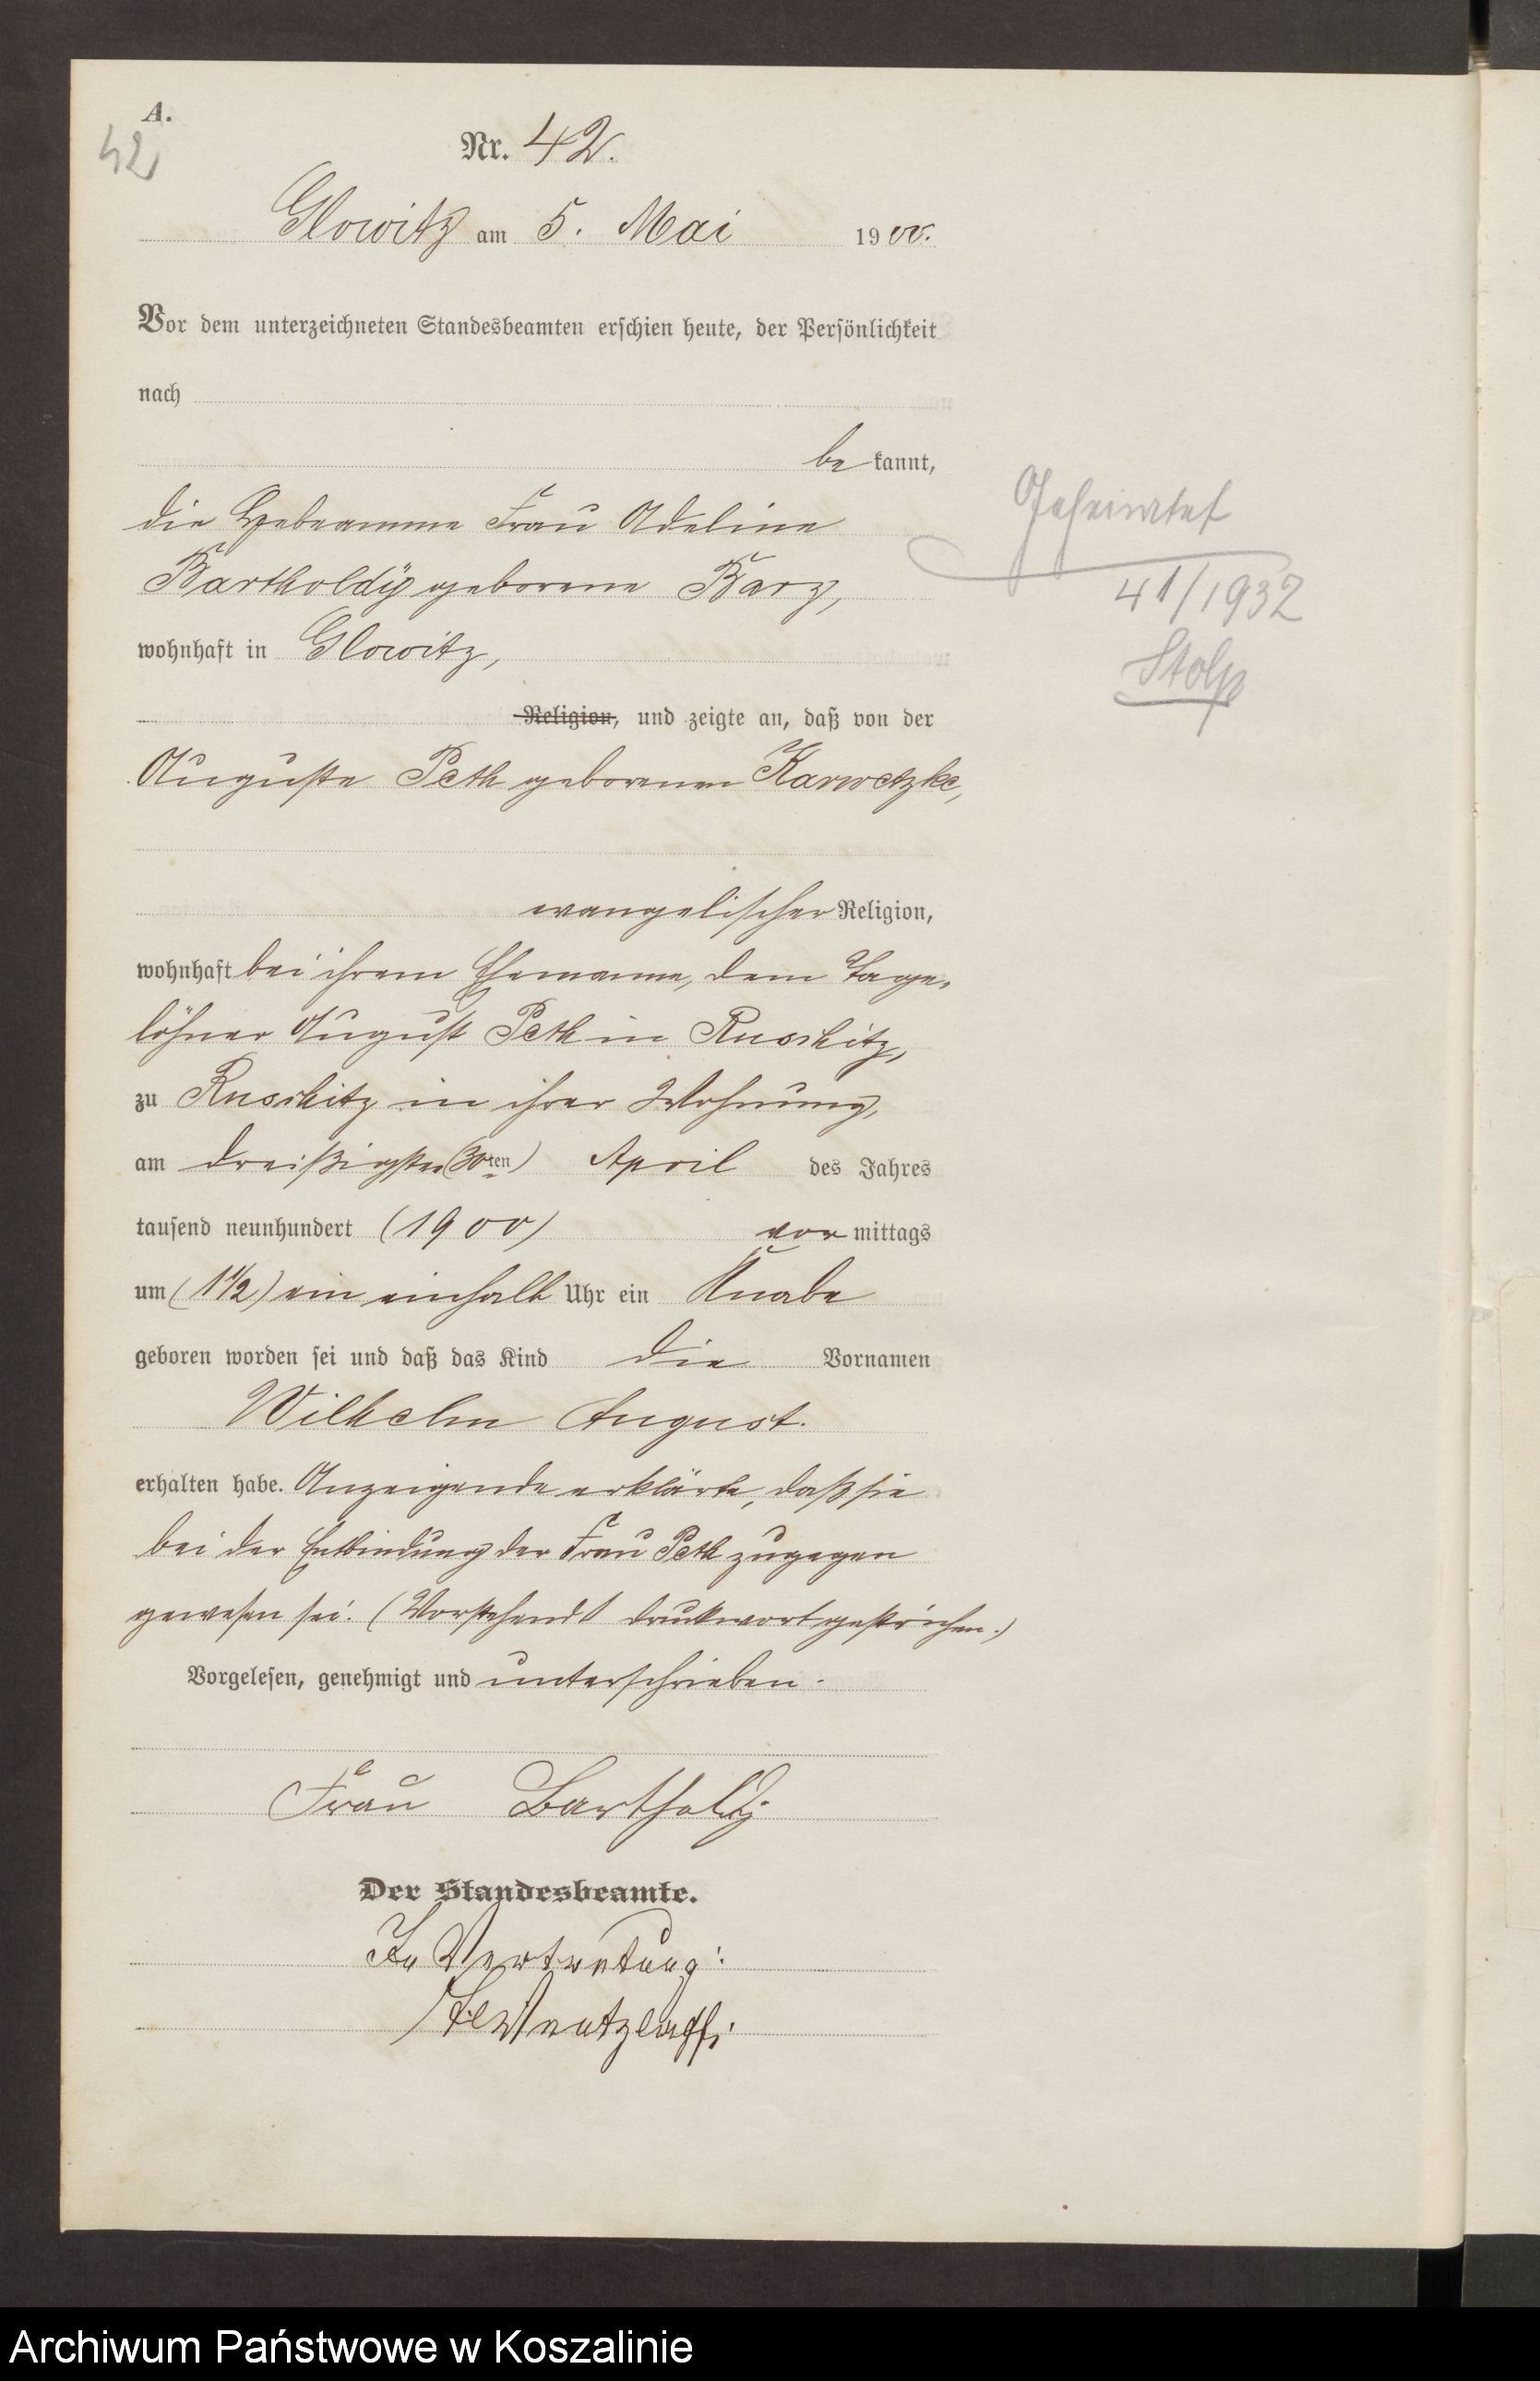 A.
42
Nr. 42.
Glowitz am 5. Mai 1900.
Vor dem unterzeichneten Standesbeamten erschien heute, der Persönlichkeit
nach
be kannt,
die Hebeamme Frau Adeline
Bartholdÿ geborene Barz,
wohnhaft in Glowitz,
Religion, und zeigte an, daß von der
Auguste Peth geborenen Karwetzke,
evangelischer Religion,
wohnhaft bei ihrem Ehemanne, dem Tage-
löhner August Peth in Ruschitz,
zu Ruschitz in ihrer Wohnung,
am dreißigsten (30ten) April des Jahres
tausend neunhundert (1900) vor mittags
um (1 1/2) ein einhalb Uhr ein Knabe
geboren worden sei und daß das Kind die Vornamen
Wilhelm August.
erhalten habe. Anzeigende erklärte, daß sie
bei der Entbindung der Frau Peth zugegen
gewesen sei. (Vorstehend 1 Druckwort gestrichen.)
Vorgelesen, genehmigt und unterschrieben.
Frau Bartholdy
Der Standesbeamte.
In Vertretung:
Geheiratet
41/1932
Stolp
Archiwum Państwowe w Koszalinie